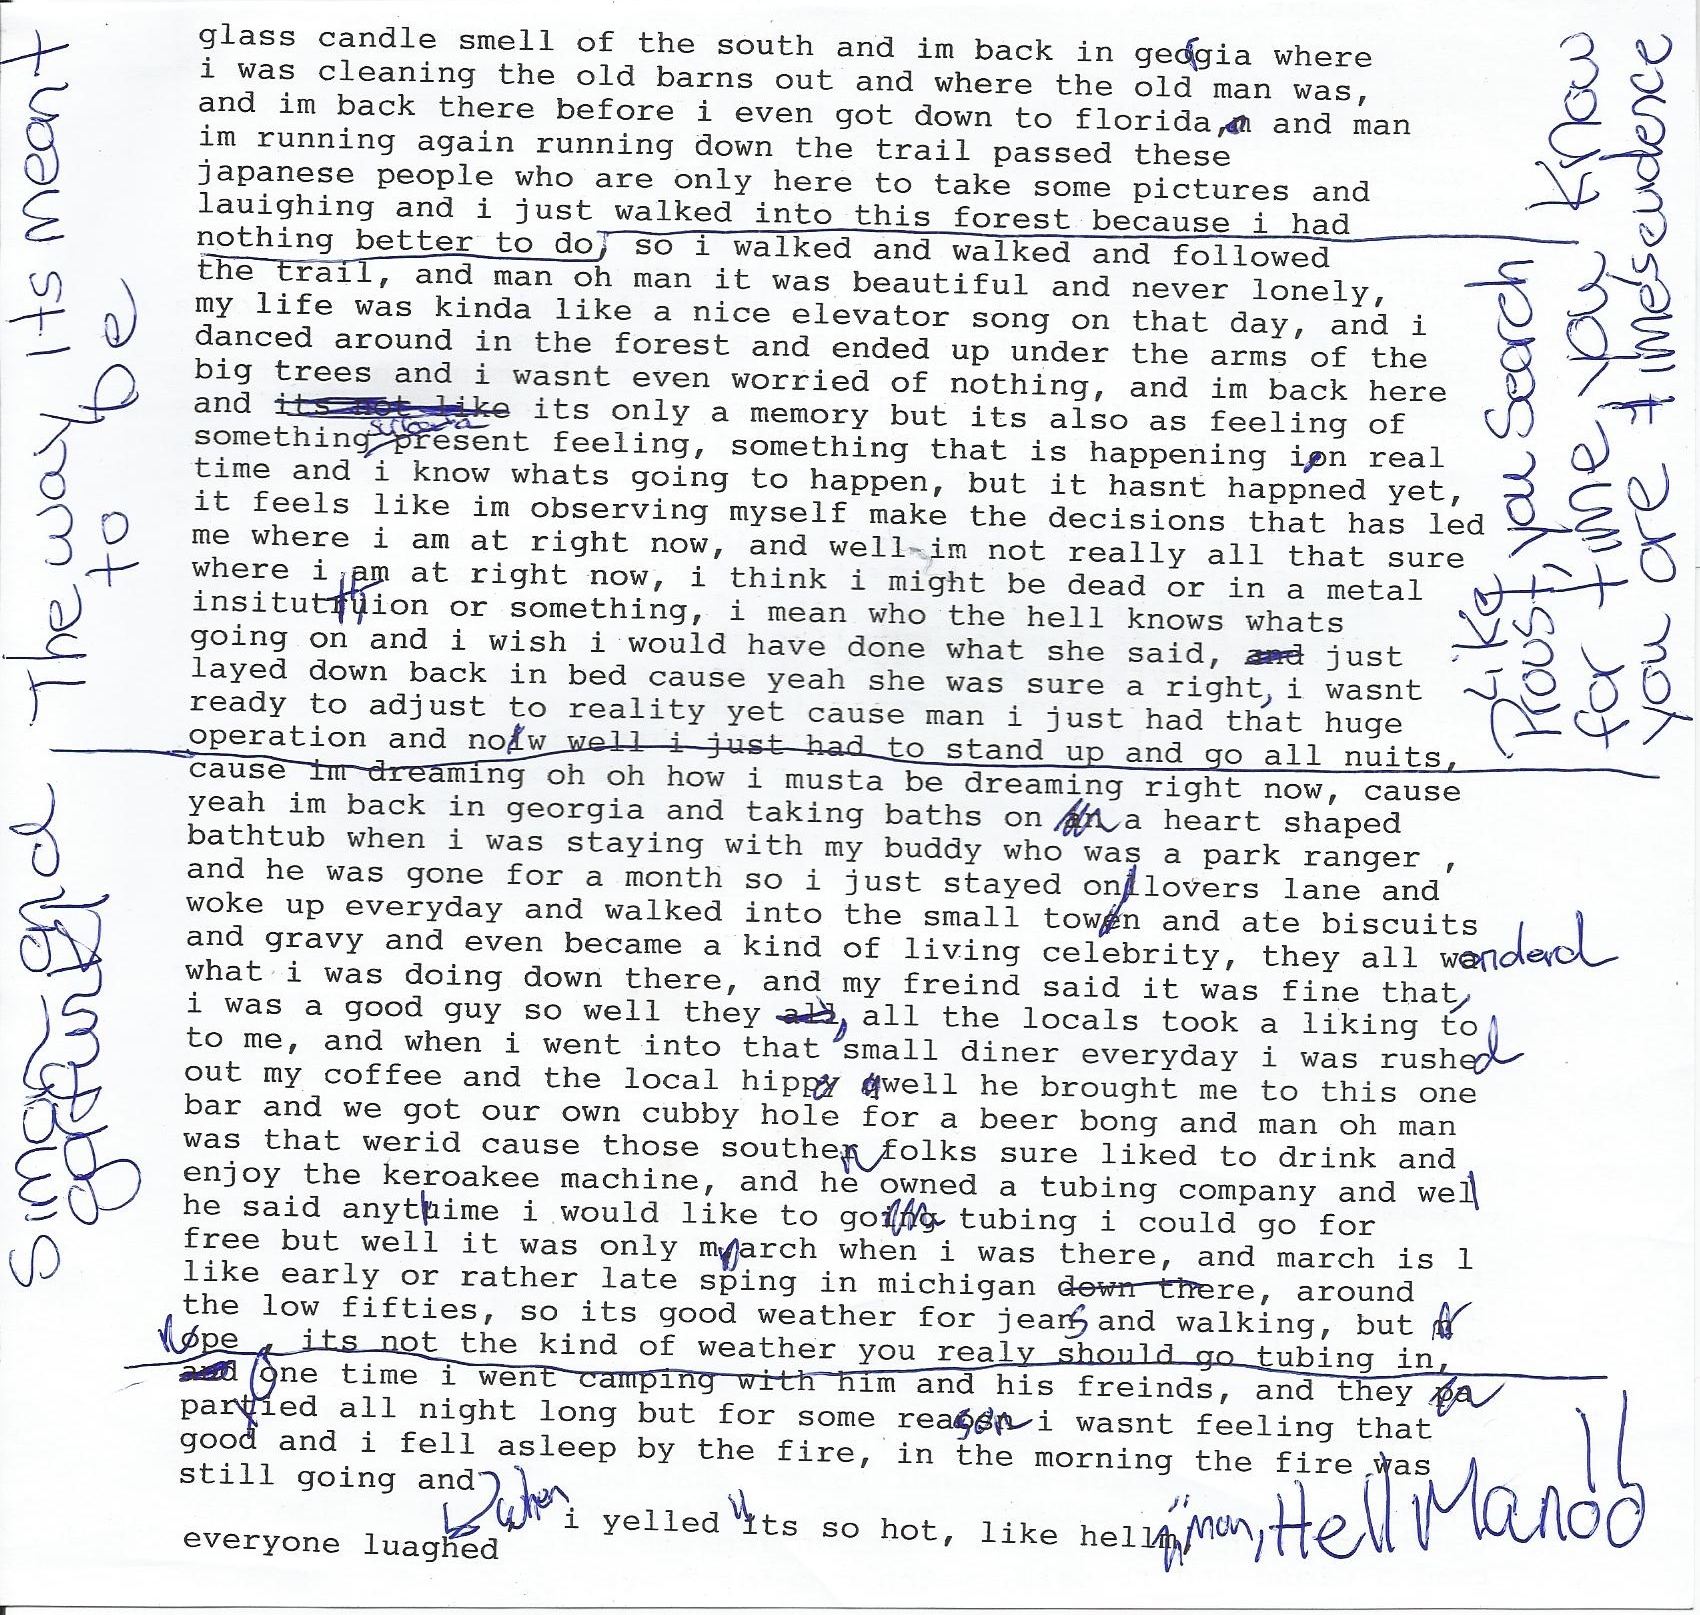 glass candle smell of the south and im back in georgia where
i was cleaning the old barns out and where the old man was,
and im back there before i even got down to florida, and man
im running again running down the trail passed these
japanese people who are only here to take some pictures and
lauighing and i just walked into this forest because i had
nothing better to do, so i walked and walked and followed
the trail, and man oh man it was beautiful and never lonely,
my life was kinda like a nice elevator song on that day, and i
danced around in the forest and ended up under the arms of the
big trees and i wasnt even worried of nothing, and im back here
and its not like its only a memory but its also as feeling of
something present feeling, something that is happening ion real
time and i know whats going to happen, but it hasnt happned yet,
it feels like im observing myself make the decisions that has led
me where i am at right now, and well im not really all that sure
where i am at right now, i think i might be dead or in a metal
insitution or something, i mean who the hell knows whats
going on and i wish i would have done what she said, and just
layed down back in bed cause yeah she was sure a right, i wasnt
ready to adjust to reality yet cause man i just had that huge
operation and now well i just had to stand up and go all nuits,
cause im dreaming oh oh how i musta be dreaming right now, cause
yeah im back in georgia and taking baths on an a heart shaped
bathtub when i was staying with my buddy who was a park ranger ,
and he was gone for a month so i just stayed on lovers lane and
woke up everyday and walked into the small town and ate biscuits
and gravy and even became a kind of living celebrity, they all wonderd
what i was doing down there, and my freind said it was fine that,
i was a good guy so well they all, all the locals took a liking to
to me, and when i went into that small diner everyday i was rushed
out my coffee and the local hippy well he brought me to this one
bar and we got our own cubby hole for a beer bong and man oh man
was that werid cause those southern folks sure liked to drink and
enjoy the keroakee machine, and he owned a tubing company and well
he said anytime i would like to go tubing i could go for
free but well it was only march when i was there, and march is l
like early or rather late sping in michigan down there, around
the low fifties, so its good weather for jeans and walking, but
Nope , its not the kind of weather you realy should go tubing in,
and One time i went camping with him and his freinds, and they pa
partied all night long but for some reason i wasnt feeling that
good and i fell asleep by the fire, in the morning the fire was
still going and
when i yelled "its so hot, like hell man, Hell Manoo!!
everyone luaghed
The way its meant
to be
Like you Search Know
Proust, you Search
for time you
you are times